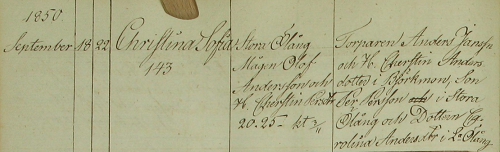 1850.
September 18 22 Christina Sofia
143
Stora Öläng
Mågen Olof
Andersson och
H. Cherstin Persdr
20-25- kt 3/11
Torparen Anders Jansson
och H. Cherstin Anders
dotter i Björkmon, Son
Per Persson i Stora
Öläng och Dottern Ca
rolina Andersdtr i La Öläng.